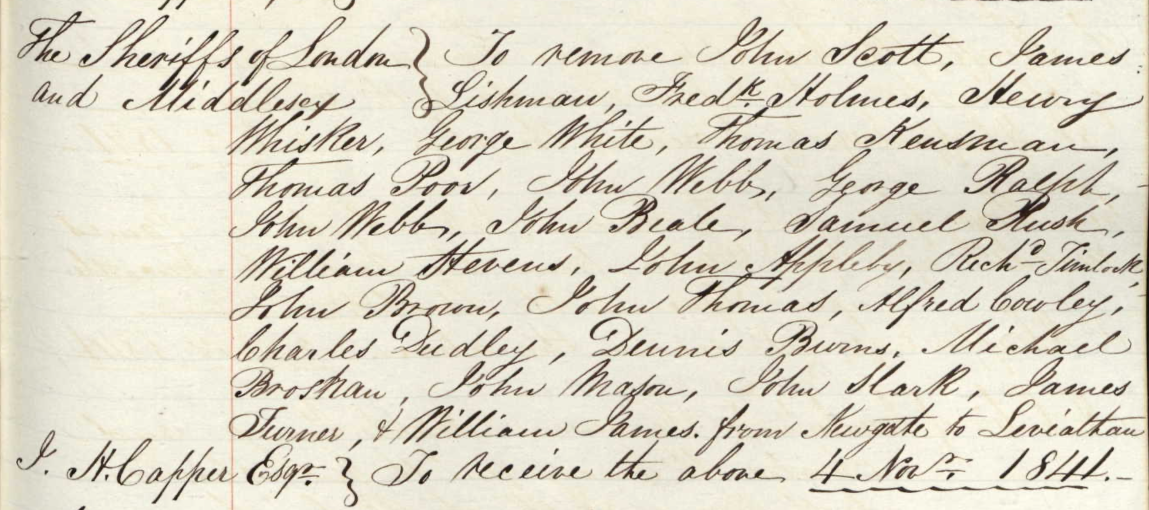 The Sheriffs of London } To remove John Scott, James
and Middlesex } Lishman, Fredk. Holmes, Henry
Whisker, George White, Thomas Kensman,
Thomas Poor, John Webb, George Ralph,
John Webb, John Beale, Samuel Rush,
William Stevens, John Appleby, Richd. Timlock,
John Brown, John Thomas, Alfred Cowley,
Charles Dudley, Dennis Burns, Michael
Broskan, John Mason, John Slark, James
Turner, & William James. from Newgate to Leviathan
J. H. Capper Esqr. } To receive the above 4 Novr. 1841.-